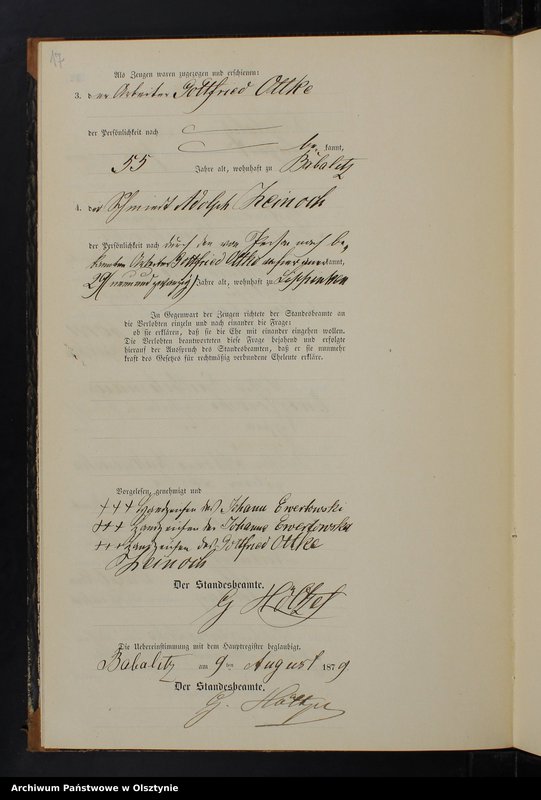 17
Als Zeugen waren zugezogen und erschienen:
3. der Arbeiter Gottfried Ottke
der Persönlichkeit nach
be kannt,
55 Jahre alt, wohnhaft zu Babalitz
4. der Schmied Adolph Zeinoch
der Persönlichkeit nach durch den von Person nach be
kannten Arbeiter Gottfried Ottke kannt,
29 (neun und zwanzig) Jahre alt, wohnhaft zu
In Gegenwart der Zeugen richtete der Standesbeamte an
die Verlobten einzeln und nach einander die Frage:
ob sie erklären, daß sie die Ehe mit einander eingehen wollen.
Die Verlobten beantworteten diese Frage bejahend und erfolgte
hierauf der Ausspruch des Standesbeamten, daß er sie nunmehr
kraft des Gesetzes für rechtmäßig verbundene Eheleute erkläre.
Vorgelesen, genehmigt und
+++ Handzeichen des Johann Ewertowski
+++ Handzeichen der Johanna Ewertowska
+++ Handzeichen des Gottfried Ottke
Zeinoch
Der Standesbeamte.
G Höltzel
Die Uebereinstimmung mit dem Hauptregister beglaubigt.
Babalitz am 9 ten August 1879
Der Standesbeamte.
G.
Archiwum Państwowe w Olsztynie